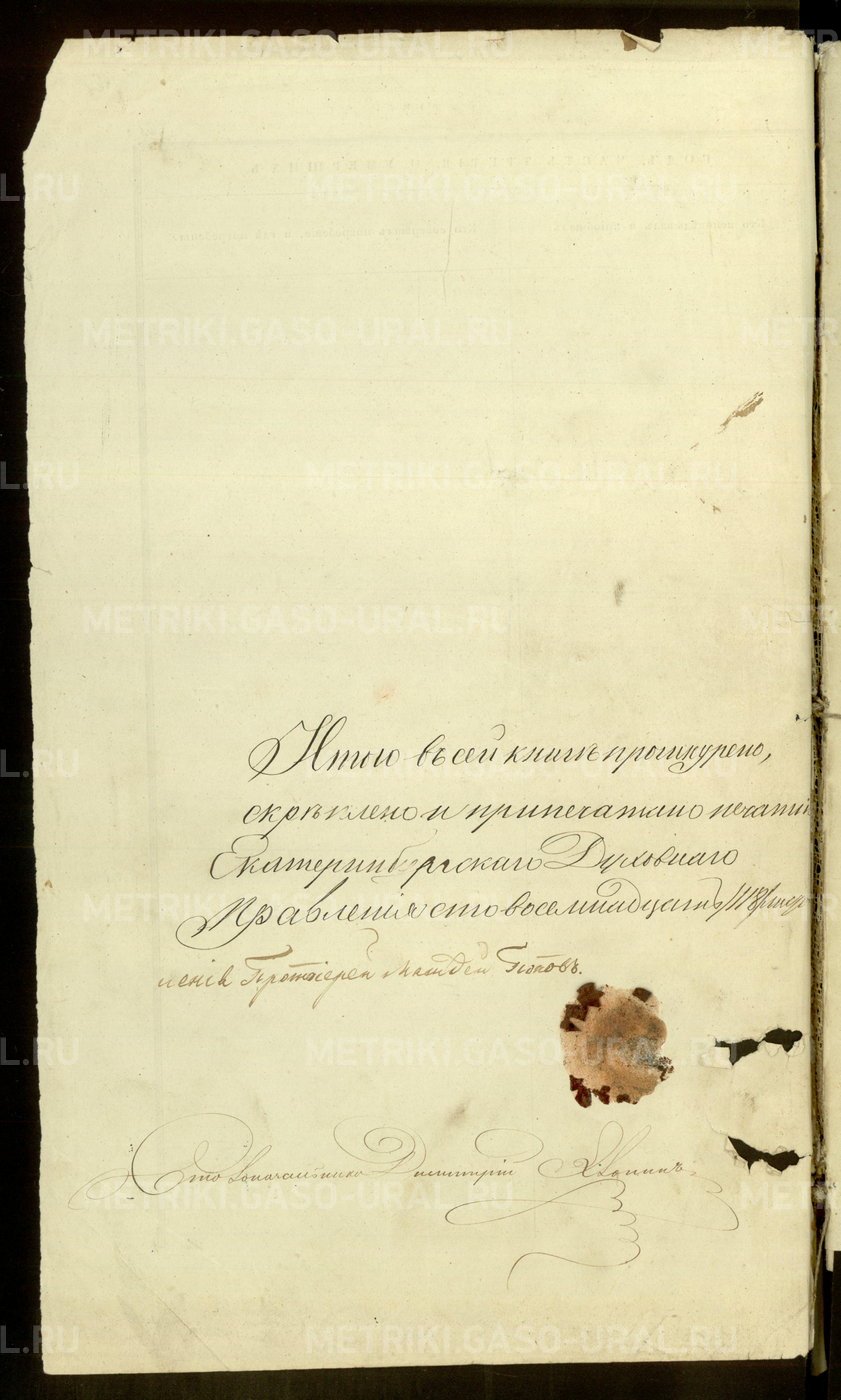 METRIKI.GASO-URAL.RU
Итого въ сей книгѣ прошнурено,
скрѣплено и припечатано печатію
Екатеринбургскаго Духовнаго
Правленія сто восемнадцать /118/
Протоіерей Матфей Поповъ.
Столоначальникъ Димитрій